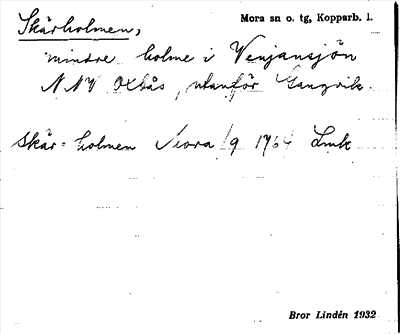 Skärholmen, Mora sn o. tg, Kopparb. l.
mindre holme i Venjansjön
NNV Oxbås, utanför
Skär-holmen Mora /9 1964 Lmk
Bror Lindén 1932